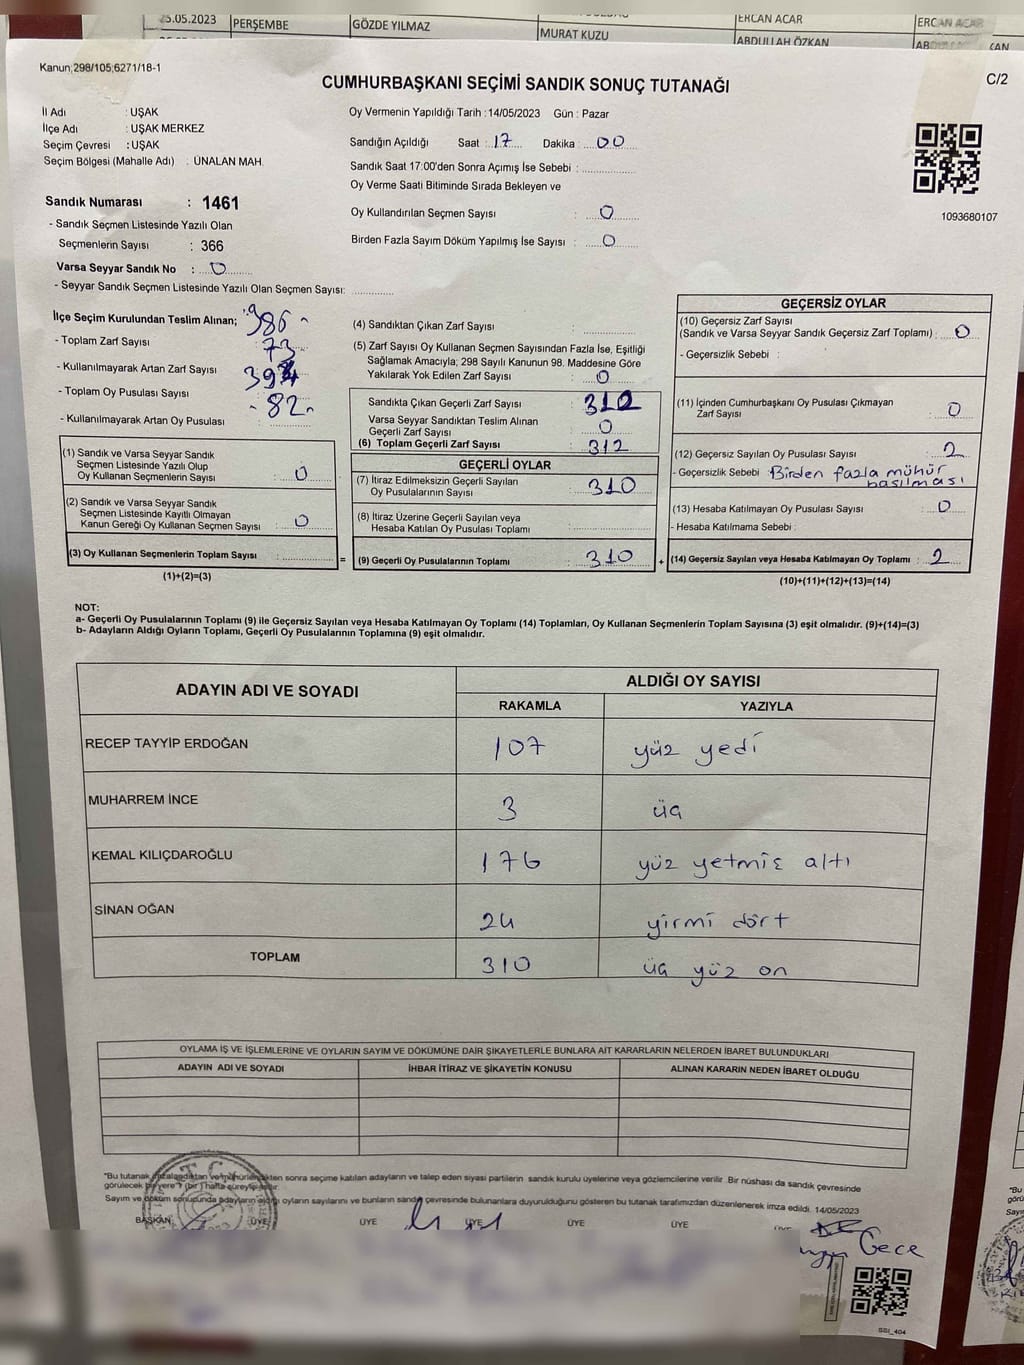 25.05.2023 PERŞEMBE GÖZDE YILMAZ MURAT KUZU ERCAN ACAR ERCAN ACAR
ABDULLAH ÖZKAN
Kanun;298/105;6271/18-1
C/2
CUMHURBAŞKANI SEÇİMİ SANDIK SONUÇ TUTANAĞI
İl Adı : UŞAK
İlçe Adı : UŞAK MERKEZ
Seçim Çevresi : UŞAK
Seçim Bölgesi (Mahalle Adı) : ÜNALAN MAH.
Oy Vermenin Yapıldığı Tarih : 14/05/2023 Gün : Pazar
Sandığın Açıldığı Saat : 17 Dakika : 00
Sandık Saat 17:00'den Sonra Açımış İse Sebebi :
Oy Verme Saati Bitiminde Sırada Bekleyen ve
Oy Kullandırılan Seçmen Sayısı : 0
Birden Fazla Sayım Döküm Yapılmış İse Sayısı : 0
1093680107
Sandık Numarası : 1461
- Sandık Seçmen Listesinde Yazılı Olan
Seçmenlerin Sayısı : 366
Varsa Seyyar Sandık No : 0
- Seyyar Sandık Seçmen Listesinde Yazılı Olan Seçmen Sayısı:
İlçe Seçim Kurulundan Teslim Alınan;
- Toplam Zarf Sayısı
- Kullanılmayarak Artan Zarf Sayısı 73
- Toplam Oy Pusulası Sayısı
- Kullanılmayarak Artan Oy Pusulası - 82 -
(1) Sandık ve Varsa Seyyar Sandık
Seçmen Listesinde Yazılı Olup
Oy Kullanan Seçmenlerin Sayısı : 0
(2) Sandık ve Varsa Seyyar Sandık
Seçmen Listesinde Kayıtlı Olmayan
Kanun Gereği Oy Kullanan Seçmen Sayısı : 0
(3) Oy Kullanan Seçmenlerin Toplam Sayısı : =
(1)+(2)=(3)
(4) Sandıktan Çıkan Zarf Sayısı :
(5) Zarf Sayısı Oy Kullanan Seçmen Sayısından Fazla İse, Eşitliği
Sağlamak Amacıyla; 298 Sayılı Kanunun 98. Maddesine Göre
Yakılarak Yok Edilen Zarf Sayısı : 0
Sandıkta Çıkan Geçerli Zarf Sayısı : 312
Varsa Seyyar Sandıktan Teslim Alınan
Geçerli Zarf Sayısı : 0
(6) Toplam Geçerli Zarf Sayısı : 312
GEÇERLİ OYLAR
(7) İtiraz Edilmeksizin Geçerli Sayılan
Oy Pusulalarının Sayısı : 310
(8) İtiraz Üzerine Geçerli Sayılan veya
Hesaba Katılan Oy Pusulası Toplamı :
(9) Geçerli Oy Pusulalarının Toplamı : 310 +
GEÇERSİZ OYLAR
(10) Geçersiz Zarf Sayısı
(Sandık ve Varsa Seyyar Sandık Geçersiz Zarf Toplamı) : 0
- Geçersizlik Sebebi :
(11) İçinden Cumhurbaşkanı Oy Pusulası Çıkmayan
Zarf Sayısı : 0
(12) Geçersiz Sayılan Oy Pusulası Sayısı : 2
- Geçersizlik Sebebi : Birden fazla mühür
basılması
(13) Hesaba Katılmayan Oy Pusulası Sayısı : 0
- Hesaba Katılmama Sebebi :
(14) Geçersiz Sayılan veya Hesaba Katılmayan Oy Toplamı : 2
(10)+(11)+(12)+(13)=(14)
NOT:
a- Geçerli Oy Pusulalarının Toplamı (9) ile Geçersiz Sayılan veya Hesaba Katılmayan Oy Toplamı (14) Toplamları, Oy Kullanan Seçmenlerin Toplam Sayısına (3) eşit olmalıdır. (9)+(14)=(3)
b- Adayların Aldığı Oyların Toplamı, Geçerli Oy Pusulalarının Toplamına (9) eşit olmalıdır.
ADAYIN ADI VE SOYADI ALDIĞI OY SAYISI
RAKAMLA YAZIYLA
RECEP TAYYİP ERDOĞAN 107 yüz yedi
MUHARREM İNCE 3 üç
KEMAL KILIÇDAROĞLU 176 yüz yetmiş altı
SİNAN OĞAN 24 yirmi dört
TOPLAM 310 üç yüz on
OYLAMA İŞ VE İŞLEMLERİNE VE OYLARIN SAYIM VE DÖKÜMÜNE DAİR ŞİKAYETLERLE BUNLARA AİT KARARLARIN NELERDEN İBARET BULUNDUKLARI
ADAYIN ADI VE SOYADI İHBAR İTİRAZ VE ŞİKAYETİN KONUSU ALINAN KARARIN NEDEN İBARET OLDUĞU
"Bu tutanak imzalandıktan ve mühürlendikten sonra seçime katılan adayların ve talep eden siyasi partilerin sandık kurulu üyelerine veya gözlemcilerine verilir. Bir nüshası da sandık çevresinde
görülecek bir yere 7 (bir) hafta süreyle
Sayım ve döküm sonucunda adayların aldığı oyların sayılarını ve bunların sandık çevresinde bulunanlara duyurulduğunu gösteren bu tutanak tarafımızdan düzenlenerek imza edildi. 14/05/2023
BAŞKAN ÜYE ÜYE ÜYE ÜYE ÜYE
Gece
SSI_404